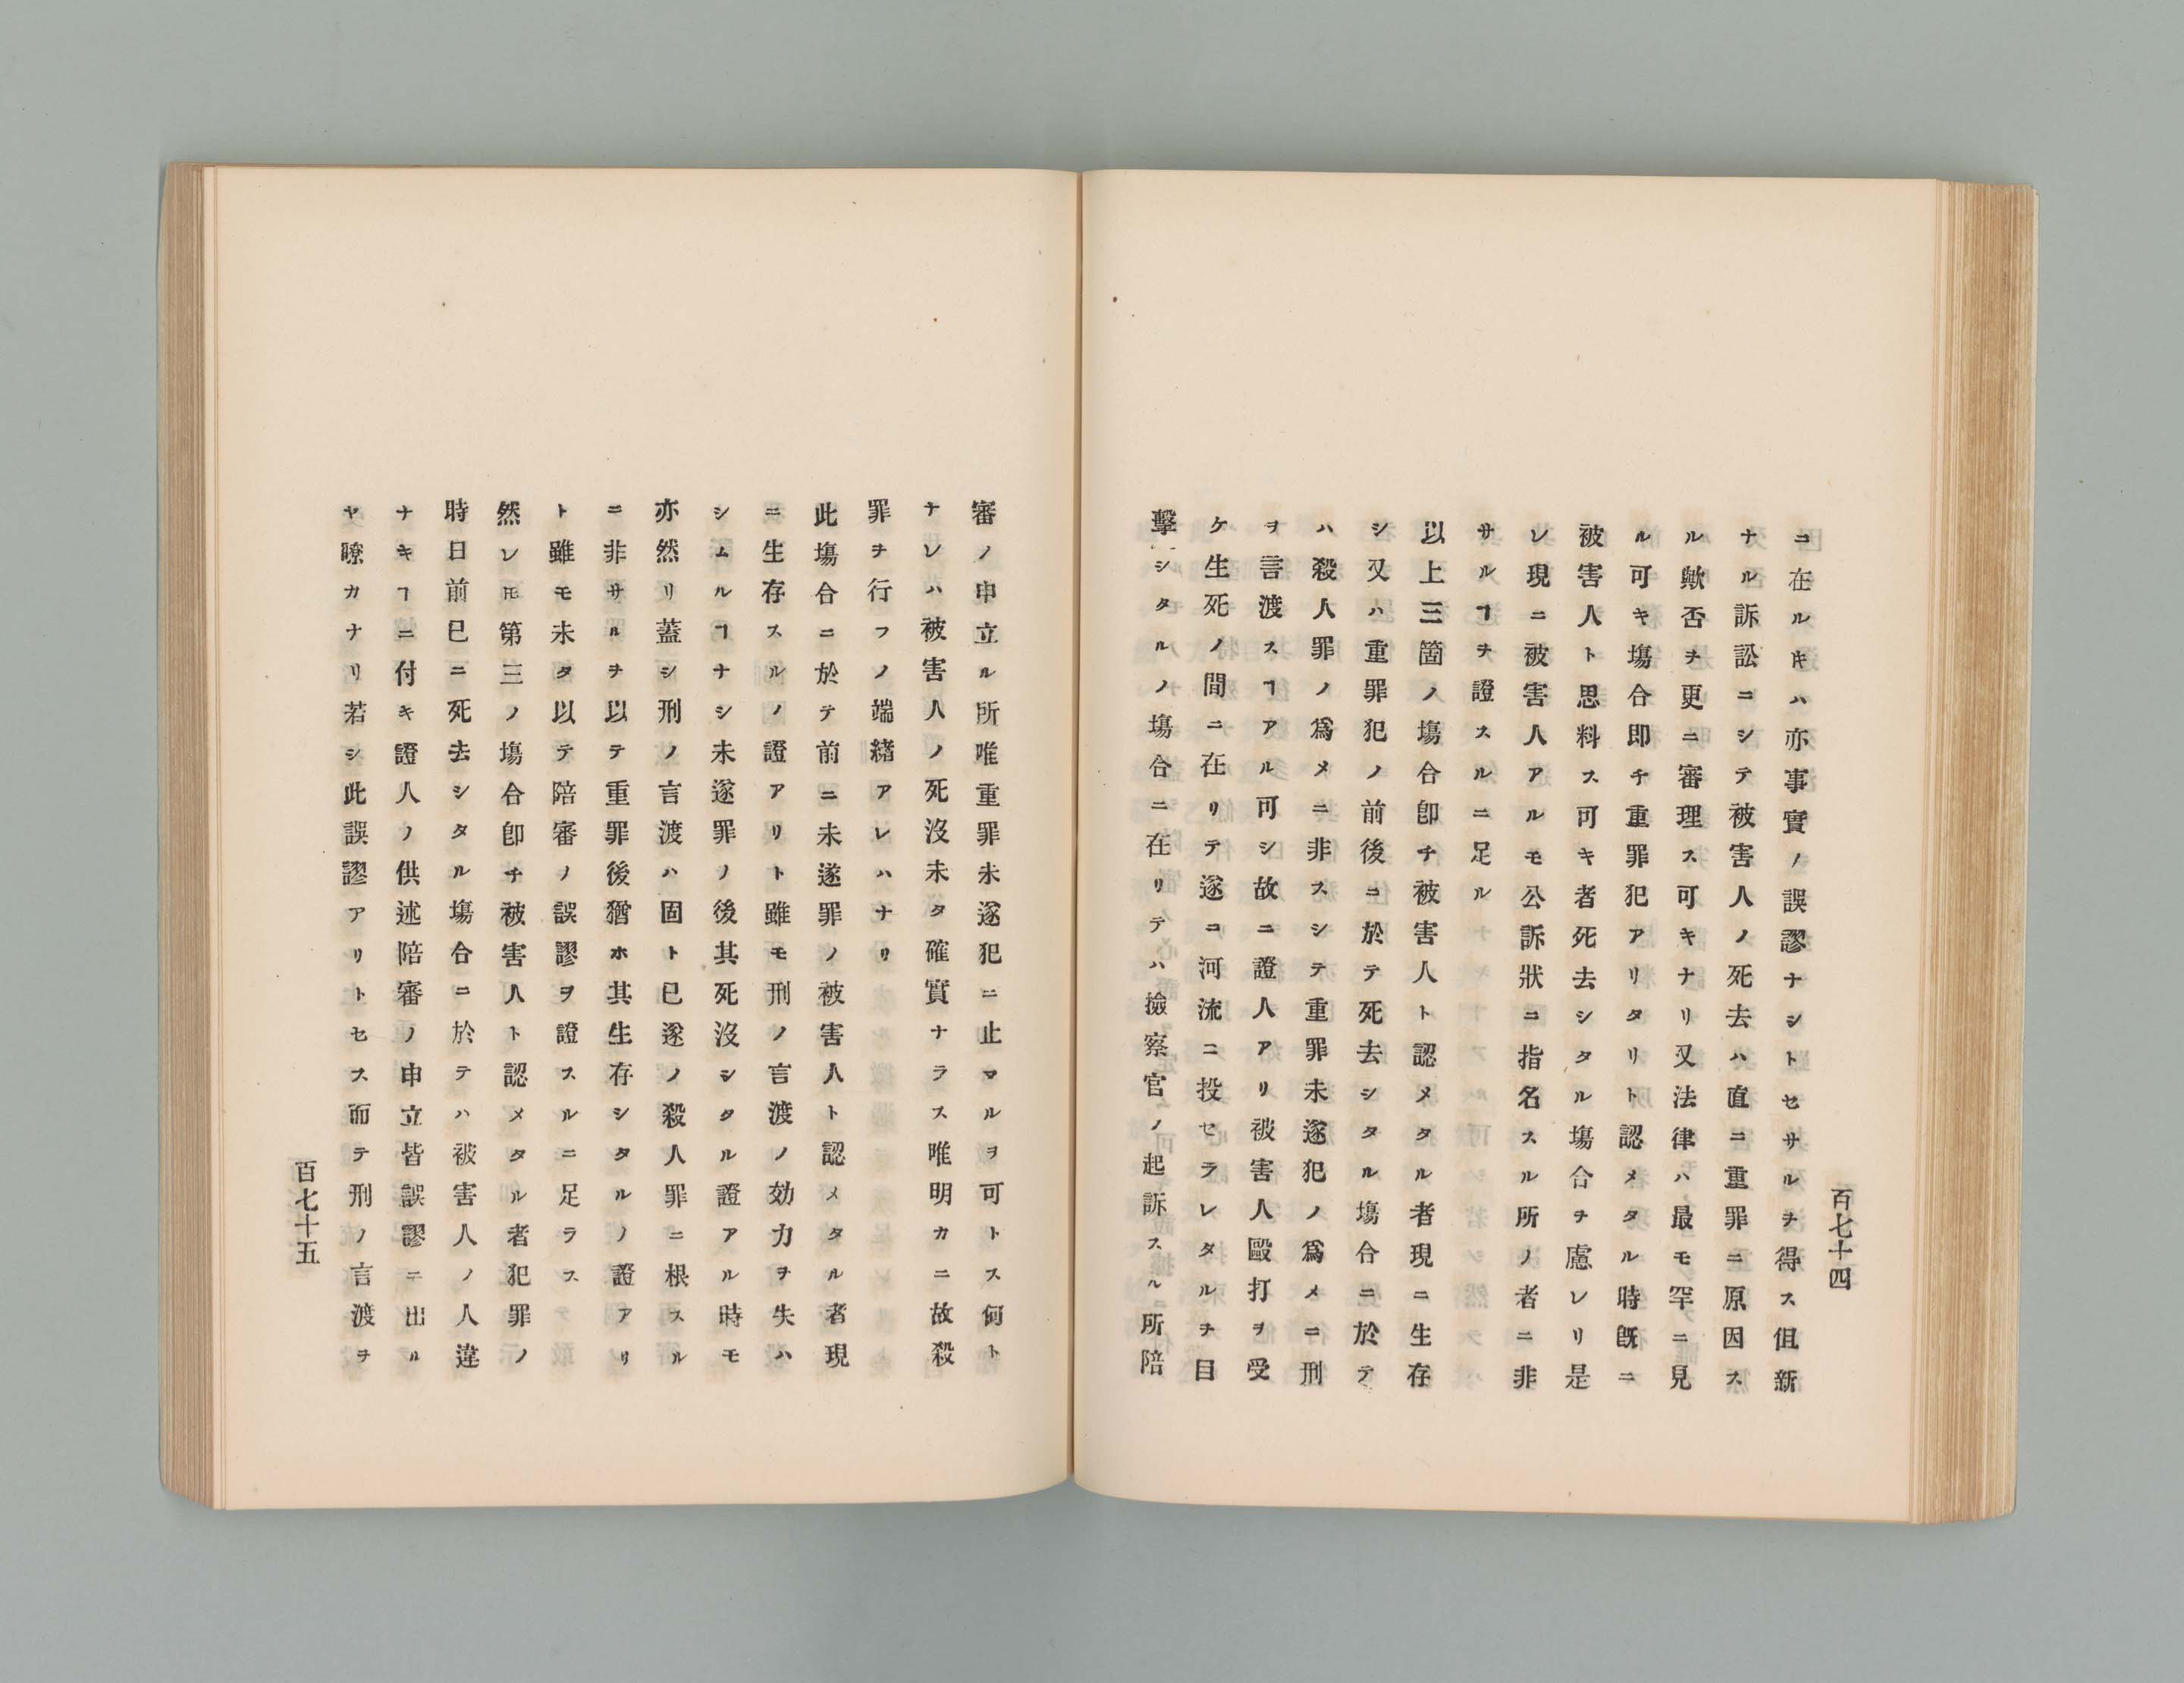 百七十四
ニ在ルキハ亦事實ノ誤謬ナシトセサルヲ得ス伹新
ナル訴訟ニシテ被害人ノ死去ハ直ニ重罪ニ原因ス
ル歟否ヲ更ニ審理ス可キナリ又法律ハ最モ罕ニ見
ル可キ塲合即チ重罪犯アリタリト認メタル時旣ニ
被害人ト思料ス可キ者死去シタル塲合ヲ慮レリ是
レ現ニ被害人アルモ公訴狀ニ指名スル所ノ者ニ非
サルヿヲ證スルニ足ル
以上三箇ノ塲合卽チ被害人ト認メタル者現ニ生存
シ又ハ重罪犯ノ前後ニ於テ死去シタル塲合ニ於テ
ハ殺人罪ノ爲メニ非スシテ重罪未遂犯ノ爲メニ刑
ヲ言渡スヿアル可シ故ニ證人アリ被害人毆打ヲ受
ケ生死ノ間ニ在リテ遂ニ河流ニ投セラレタルヲ目
擊シタルノ塲合ニ在リテハ撿察官ノ起訴スル所陪
審ノ申立ル所唯重罪未遂犯ニ止マルヲ可トス何ト
ナレハ被害人ノ死沒未タ確實ナラス唯明カニ故殺
罪ヲ行フノ端緖アレハナリ
此塲合ニ於テ前ニ未遂罪ノ被害人ト認メタル者現
ニ生存スルノ證アリト雖モ刑ノ言渡ノ効力ヲ失ハ
シムルヿナシ未遂罪ノ後其死沒シタル證アル時モ
亦然リ蓋シ刑ノ言渡ハ固ト已遂ノ殺人罪ニ根スル
ニ非サルヲ以テ重罪後猶ホ其生存シタルノ證アリ
ト雖モ未タ以テ陪審ノ誤謬ヲ證スルニ足ラス
然レ𪜈第三ノ塲合卽チ被害人ト認メタル者犯罪ノ
時日前已ニ死去シタル塲合ニ於テハ被害人ノ人違
ナキヿニ付キ證人ノ供述陪審ノ申立皆誤謬ニ出ル
ヤ瞭カナリ若シ此誤謬アリトセス而テ刑ノ言渡ヲ
百七十五